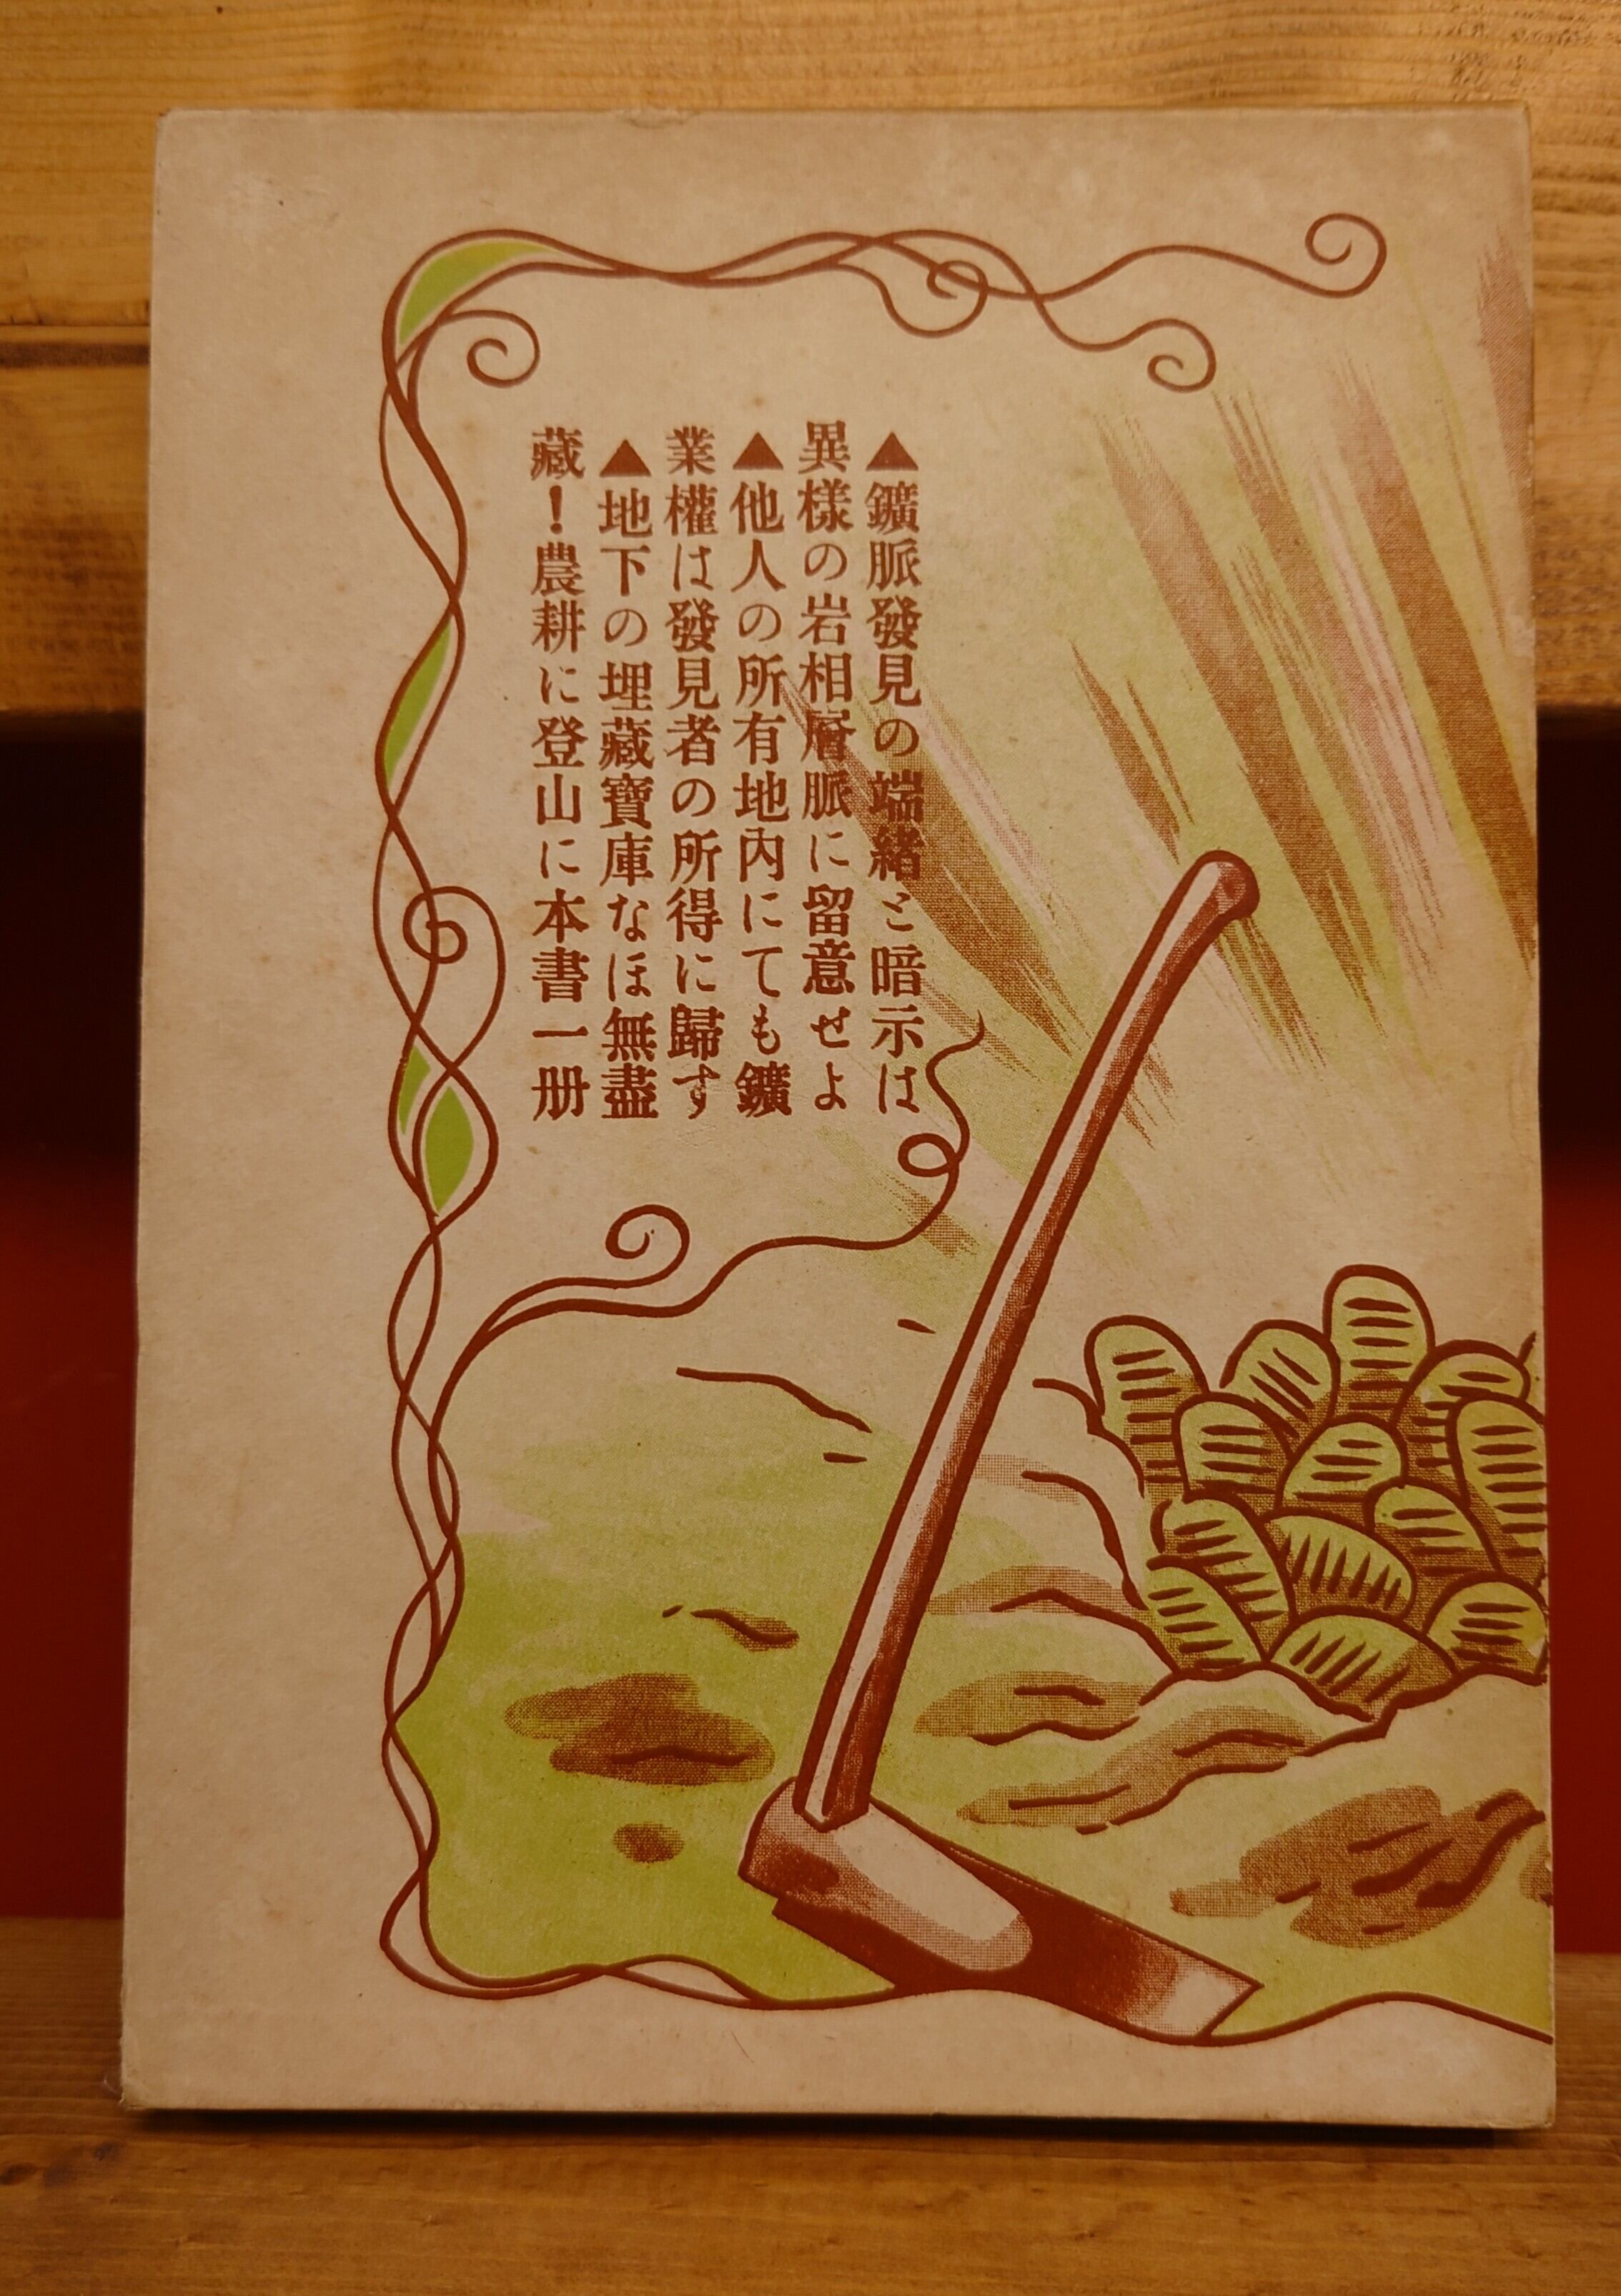 ▲鑛脈發見の端緒と暗示は
異樣の岩相層脈に留意せよ
▲他人の所有地內にても鑛
業權は發見者の所得に歸す
▲地下の埋藏寶庫なほ無盡
藏！農耕に登山に本書一册